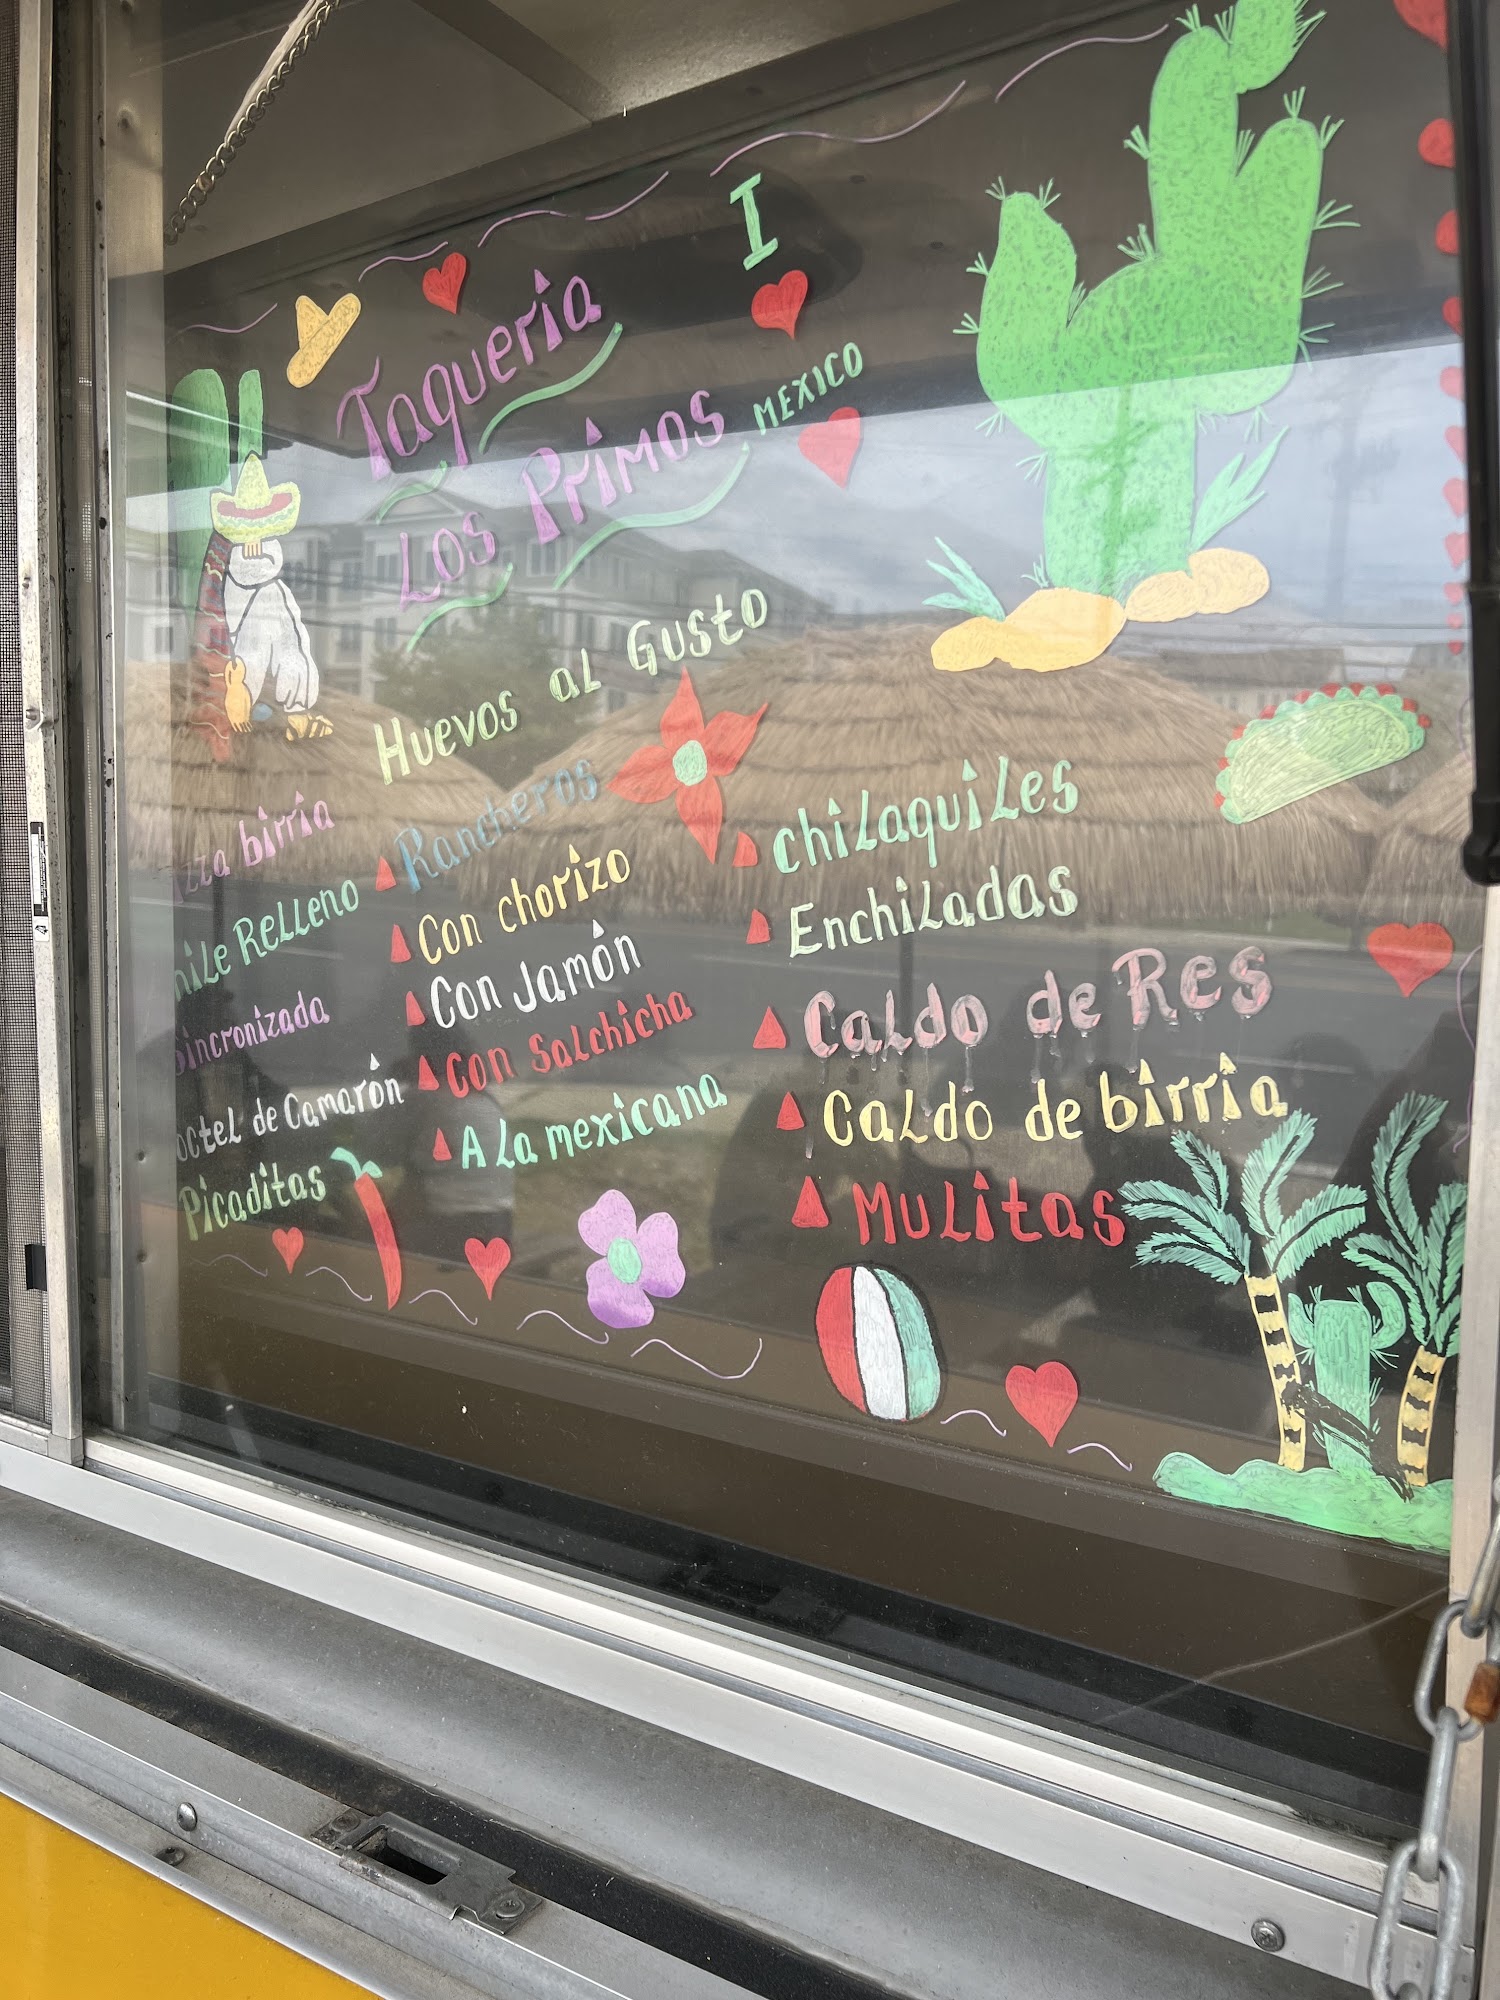 I
MEXICO
Taqueria
Los Primos
Huevos al Gusto
Rancheros
Con chorizo
Con Jamón
Con Salchicha
A La mexicana
birria
Relleno
Sincronizada
de Camarón
Picaditas
Chilaquiles
Enchiladas
Caldo de Res
Caldo de birria
Mulitas